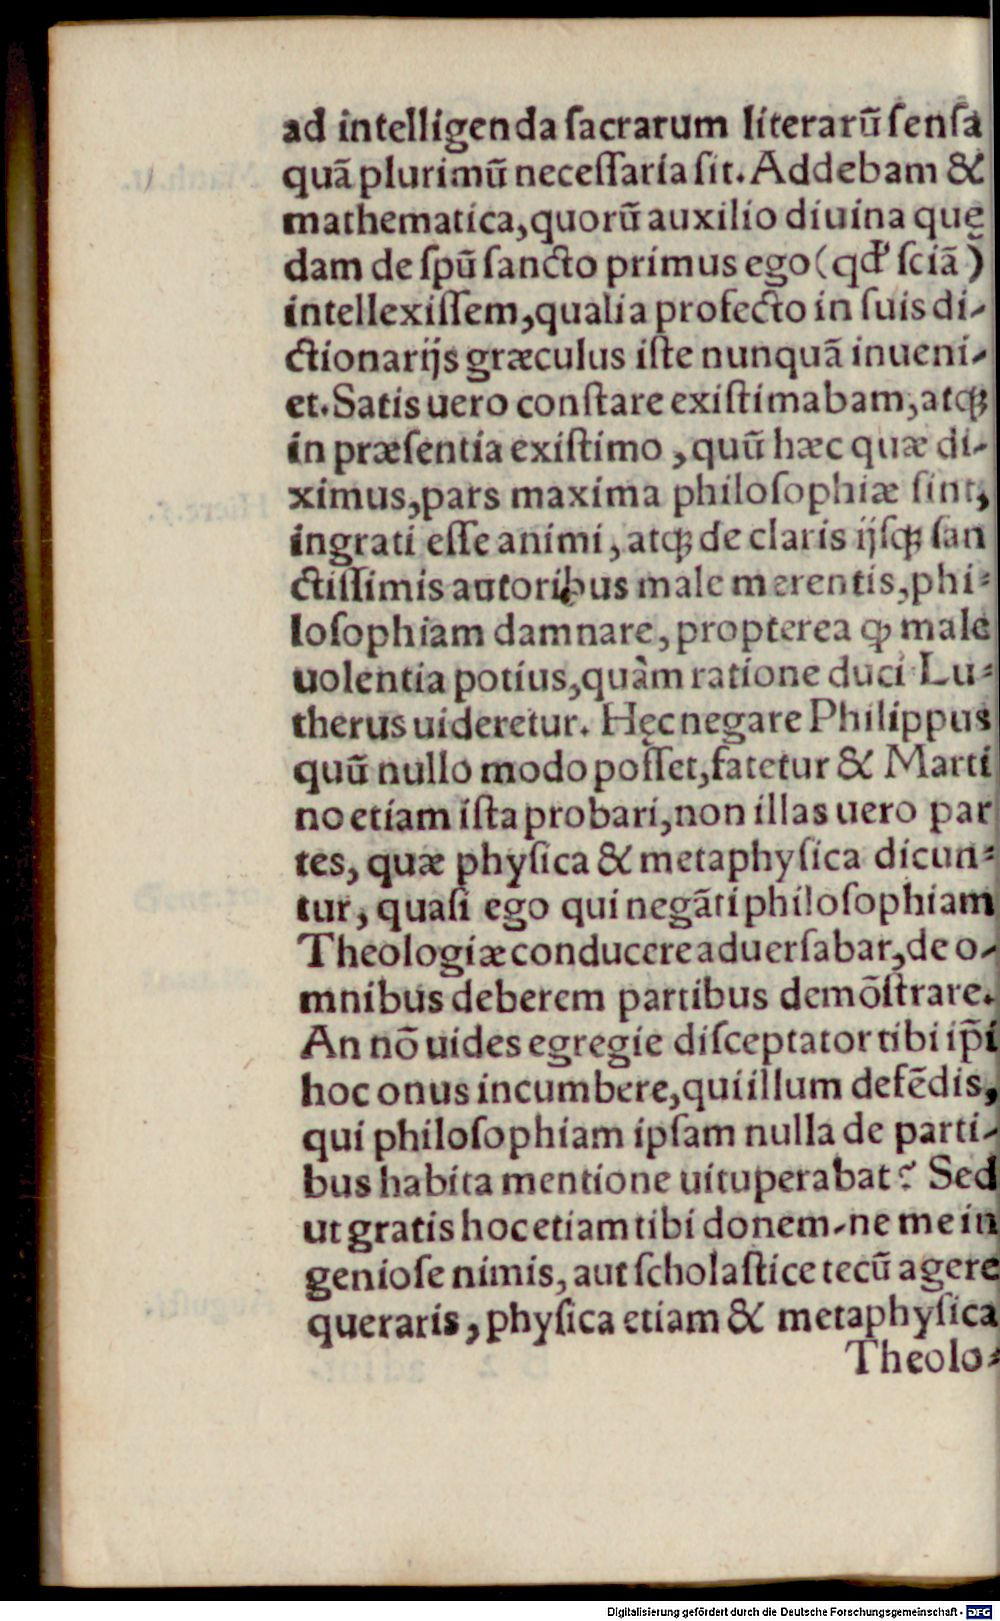 ad intelligenda ſacrarum literarū ſenſa
quā plurimū neceſſaria ſit. Addebam &
mathematica, quorū auxilio diuina quę
dam de ſpū ſancto primus ego (qd' ſciā)
intellexiſſem, qualia profecto in ſuis di-
ctionarijs græculus iſte nunquā inueni-
et. Satis uero conſtare exiſtimabam, atqꝫ
in præſentia exiſtimo, quū hæc quæ di-
ximus, pars maxima philoſophiæ ſint,
ingrati eſſe animi, atqꝫ de claris ijſqꝫ ſan
ctiſſimis autoribus male merentis, phi-
loſophiam damnare, propterea ꝙ male
uolentia potius, quàm ratione duci Lu-
therus uideretur. Hęc negare Philippus
quū nullo modo poſſet, fatetur & Marti
no etiam iſta probari, non illas uero par
tes, quæ phyſica & metaphyſica dicun-
tur, quaſi ego qui negāti philoſophiam
Theologiæ conducere aduerſabar, de o-
mnibus deberem partibus demōſtrare.
An nō uides egregie diſceptator tibi ip̄i
hoc onus incumbere, qui illum defēdis,
qui philoſophiam ipſam nulla de parti-
bus habita mentione uituperabat? Sed
ut gratis hoc etiam tibi donem, ne me in
genioſe nimis, aut ſcholaſtice tecū agere
queraris, phyſica etiam & metaphyſica
Theolo-
Digitalisierung gefördert durch die Deutsche Forschungsgemeinschaft - DFG